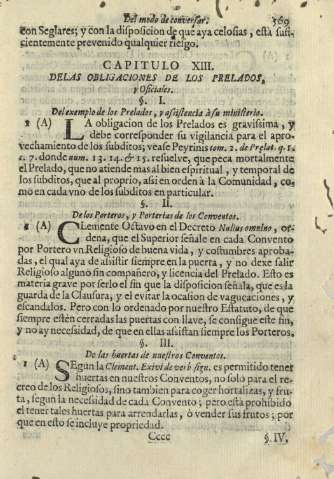 Del modo de conversar. 369
con Seglares; y con la disposicion de que aya celosias, està suf-
cientemente prevenido qualquier riesgo.
CAPITULO XIII.
DE LAS OBLIGACIONES DE LOS PRELADOS,
y Oficiales.
§. I.
Del exemplo de los Prelados, y assistencia à su ministerio.
1 (A) LA obligacion de los Prelados es gravissima, y
debe corresponder su vigilancia para el apro-
vechamiento de los subditos; vease Peyrinis tom. 2. de Prelat. q. 1.
c. 7. donde num. 13. 14. & 15. resuelve, que peca mortalmente
el Prelado, que no atiende mas al bien espiritual, y temporal de
los subditos, que al proprio, assi en orden à la Comunidad, co-
mo en cada vno de los subditos en particular.
§. II.
De los Porteros, y Porterias de los Conventos.
1 (A) CLemente Octavo en el Decreto Nullus omnino, or-
dena, que el Superior señale en cada Convento
por Portero vn Religioso de buena vida, y costumbres aproba-
das, el qual aya de assistir siempre en la puerta, y no dexe salir
Religioso alguno sin compañero, y licencia del Prelado. Esto es
materia grave por serlo el fin que la disposicion señala, que es la
guarda de la Clausura, y el evitar la ocasion de vagueaciones, y
escandalos. Pero con lo ordenado por nuestro Estatuto, de que
siempre estèn cerradas las puertas con llave, se consigue este fin,
y no ay necessidad, de que en ellas assistan siempre los Porteros.
§. III.
De las huertas de nuestros Conventos.
1 (A) SEgun la Clement. Exivi de verb. sign. es permitido tener
huertas en nuestros Conventos, no solo para el re-
creo de los Religiosos, sino tambien para coger hortalizas, y fru-
ta, segun la necessidad de cada Convento; pero està prohibido
el tener tales huertas para arrendarlas, ò vender sus frutos; por
que en esto se incluye propriedad.
Cccc §. IV.